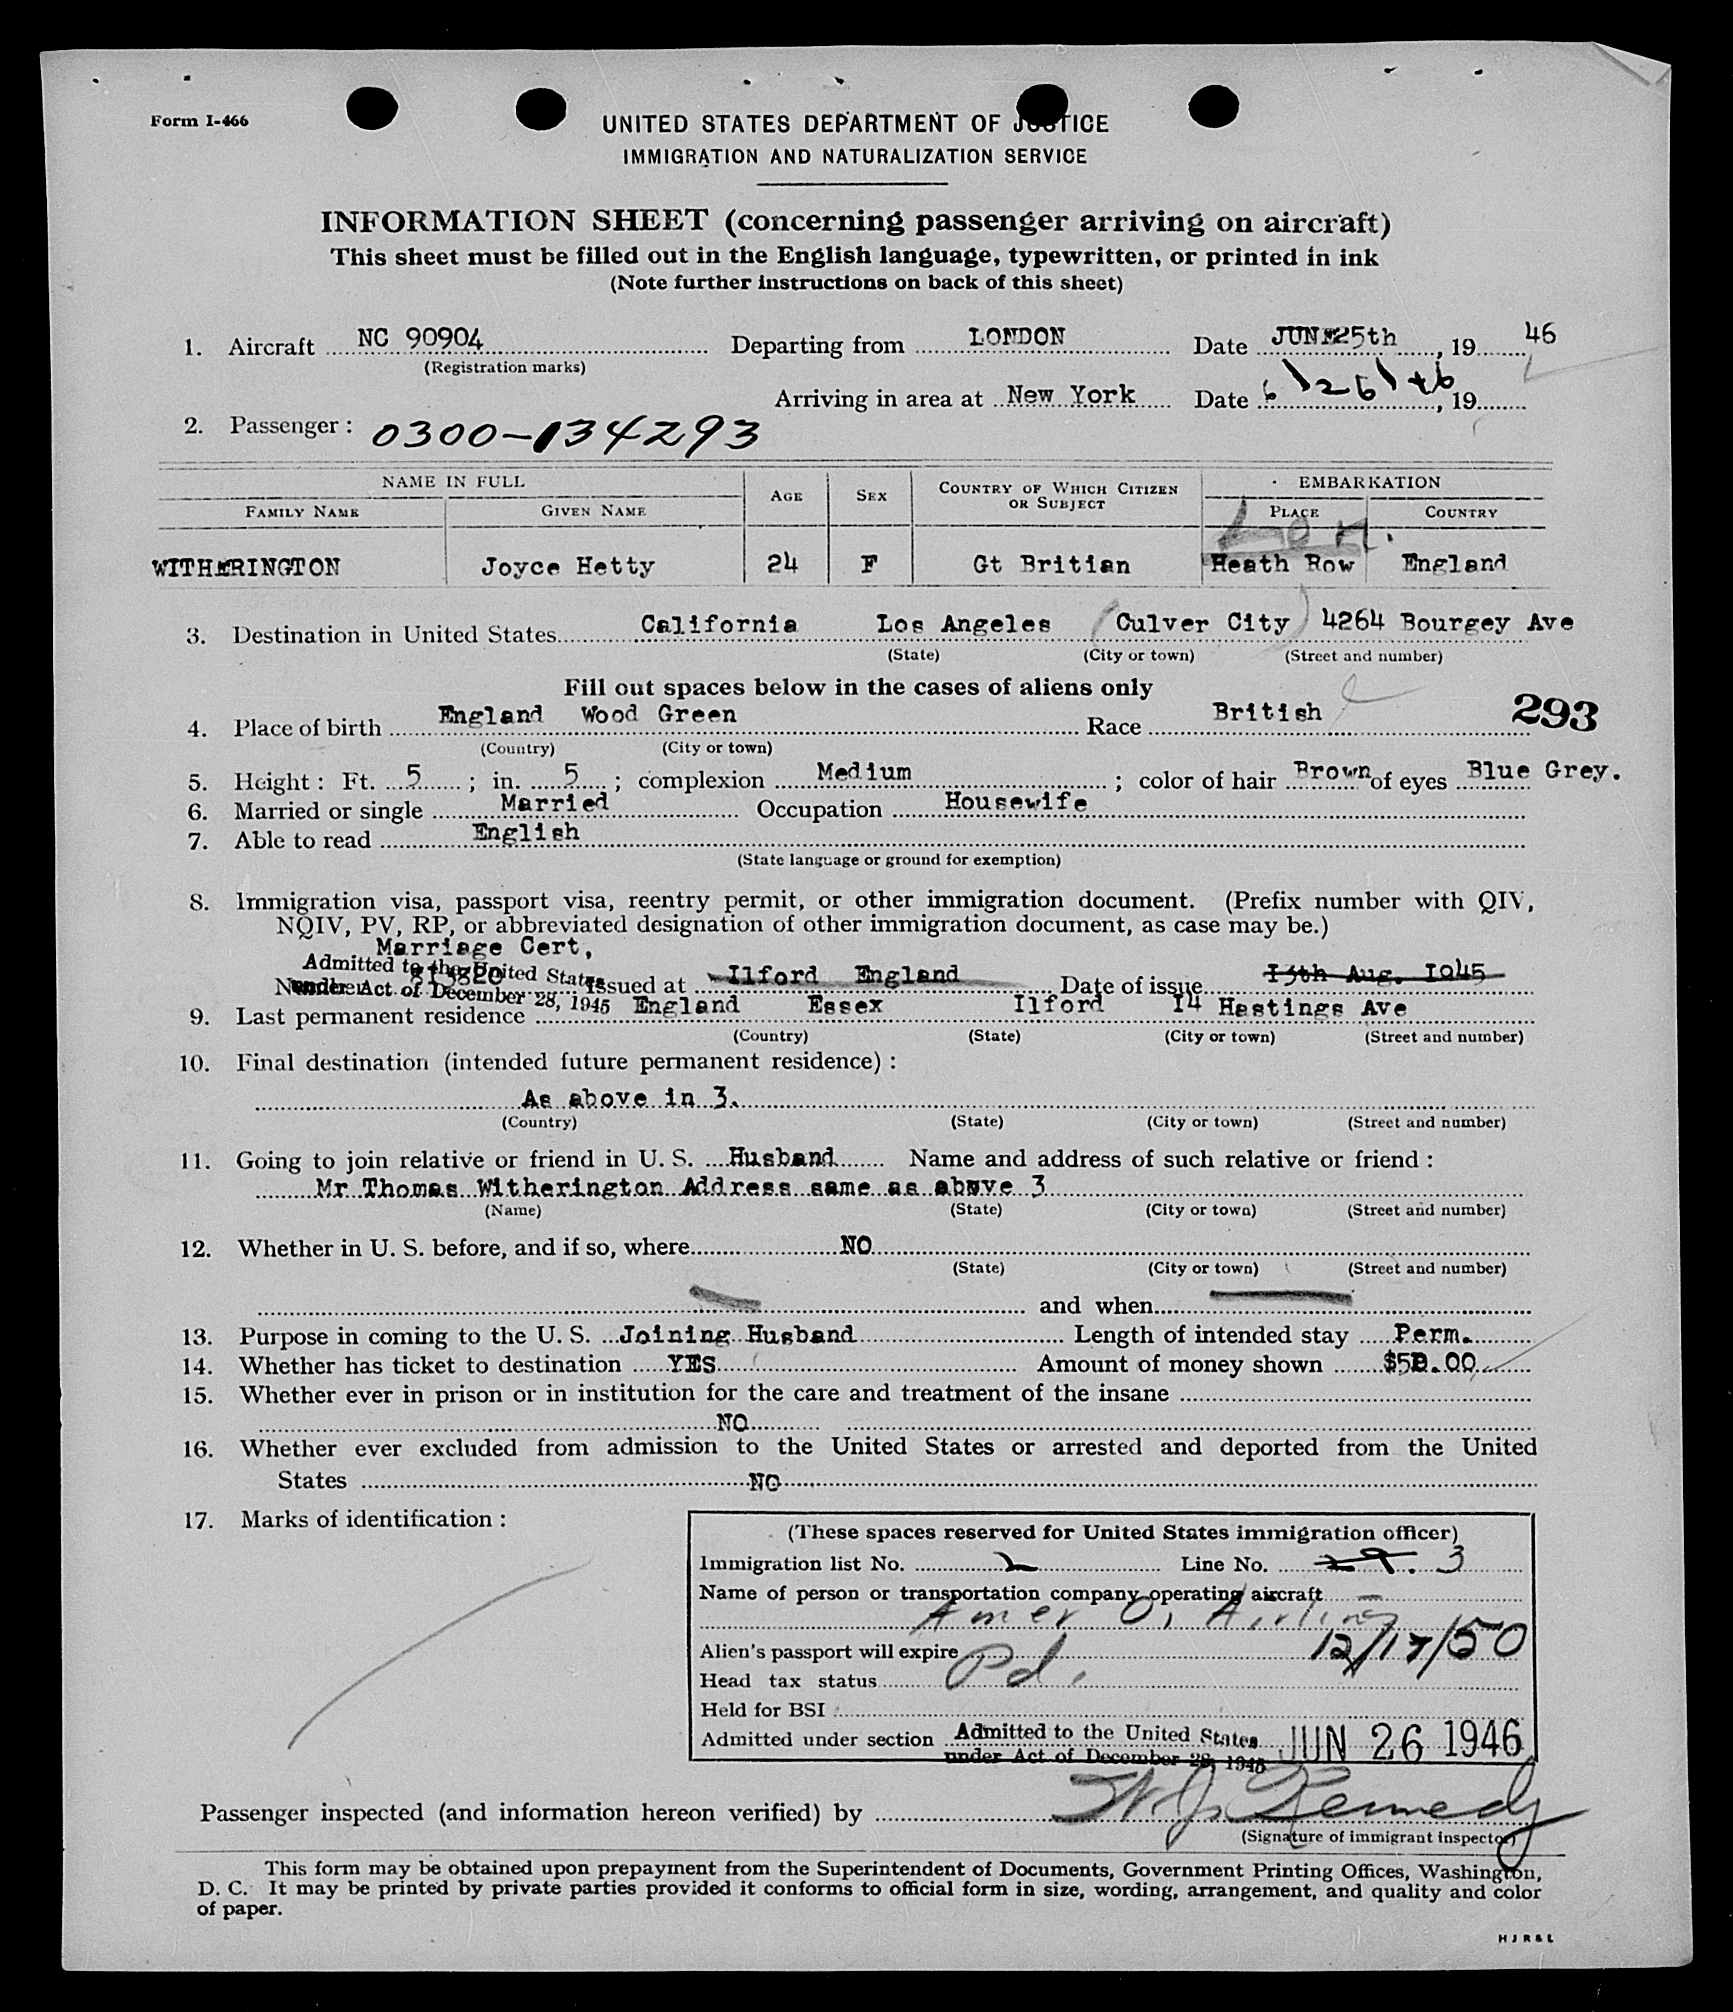 Form I-466
UNITED STATES DEPARTMENT OF JUSTICE
IMMIGRATION AND NATURALIZATION SERVICE
INFORMATION SHEET (concerning passenger arriving on aircraft)
This sheet must be filled out in the English language, typewritten, or printed in ink
(Note further instructions on back of this sheet)
1. Aircraft NC 90904 Departing from LONDON Date JUNE 25th, 19 46
(Registration marks)
Arriving in area at New York Date 6/26/46, 19
2. Passenger: 0300-134293
NAME IN FULL AGE SEX COUNTRY OF WHICH CITIZEN OR SUBJECT EMBARKATION
FAMILY NAME GIVEN NAME PLACE COUNTRY
Lon.
WITHERINGTON Joyce Hetty 24 F Gt Britian Heath Row England
3. Destination in United States California Los Angeles (Culver City) 4264 Bourgey Ave
(State) (City or town) (Street and number)
Fill out spaces below in the cases of aliens only
4. Place of birth England Wood Green Race British 293
(Country) (City or town)
5. Height: Ft. 5; in. 5; complexion Medium; color of hair Brown of eyes Blue Grey.
6. Married or single Married Occupation Housewife
7. Able to read English
(State language or ground for exemption)
8. Immigration visa, passport visa, reentry permit, or other immigration document. (Prefix number with QIV,
NQIV, PV, RP, or abbreviated designation of other immigration document, as case may be.)
Marriage Cert,
Admitted to the United States
under Act of December 28, 1945
Number Issued at Ilford England Date of issue 13th Aug. 1945
9. Last permanent residence England Essex Ilford 14 Hastings Ave
(Country) (State) (City or town) (Street and number)
10. Final destination (intended future permanent residence):
As above in 3.
(Country) (State) (City or town) (Street and number)
11. Going to join relative or friend in U. S. Husband Name and address of such relative or friend:
Mr Thomas Witherington Address same as above 3
(Name) (State) (City or town) (Street and number)
12. Whether in U. S. before, and if so, where NO
(State) (City or town) (Street and number)
and when
13. Purpose in coming to the U. S. Joining Husband Length of intended stay Perm.
14. Whether has ticket to destination YES Amount of money shown $50.00
15. Whether ever in prison or in institution for the care and treatment of the insane
NO
16. Whether ever excluded from admission to the United States or arrested and deported from the United
States NO
17. Marks of identification:
(These spaces reserved for United States immigration officer)
Immigration list No. 2 Line No. 29. 3
Name of person or transportation company operating aircraft
Amer O. Airlines
Alien's passport will expire 12/17/50
Head tax status Pd.
Held for BSI
Admitted under section Admitted to the United States JUN 26 1946
under Act of December 28, 1945
Passenger inspected (and information hereon verified) by W. J. Kennedy
(Signature of immigrant inspector)
This form may be obtained upon prepayment from the Superintendent of Documents, Government Printing Offices, Washington,
D. C. It may be printed by private parties provided it conforms to official form in size, wording, arrangement, and quality and color
of paper.
HJR&L